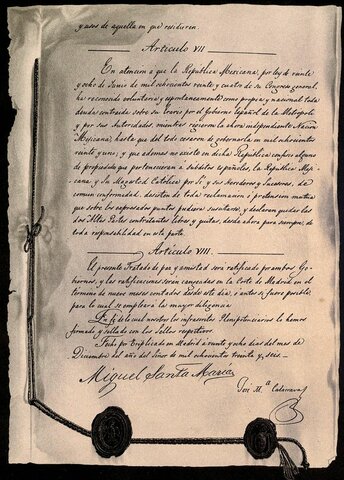 y usos de aquella en que residieren.
Articulo VII
En atencion a que la República Mexicana, por ley de veinte
y ocho de Junio de mil ochocientos veinte y cuatro de su Congreso general,
ha reconocido voluntaria y espontaneamente como propia y nacional toda
deuda contraida sobre su Erario por el Gobierno Español de la Metropoli
y por sus Autoridades, mientras rigieron la ahora independiente Nacion
Mexicana, hasta que del todo cesaron de gobernarla en mil ochocientos
veinte y uno; y que ademas no existe en dicha República confisco alguno
de propiedad que perteneciera a subditos españoles, la República Mexi-
cana, y Su Magestad Católica por Sí y sus Herederos y Sucesores, de
comun conformidad desisten de toda reclamacion ó pretension mutua
que sobre los expresados puntos pudiera suscitarse, y declaran quedar las
dos Altas Partes contratantes libres y quitas, desde ahora para siempre, de
toda responsabilidad en esta parte.
Articulo VIII
El presente Tratado de paz y amistad será ratificado por ambos Go-
biernos, y las ratificaciones serán canjeadas en la Corte de Madrid en el
termino de nueve meses contados desde este dia, ó antes si fuere posible,
para lo cual se empleará la mayor diligencia.
En fé de lo cual nosotros los infrascritos Plenipotenciarios lo hemos
firmado y sellado con los Sellos respectivos.
Fecho por triplicado en Madrid á veinte y ocho dias del mes de
Diciembre del año del Señor de mil ochocientos treinta y seis.
Miguel Santa María
José M.ª Calatrava